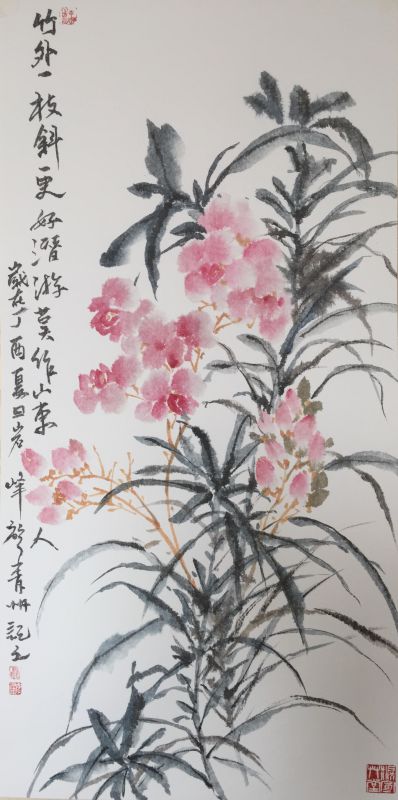 竹外一枝斜更好潛游莫作山東
人
歲在丁酉夏日岩峰於青州記之